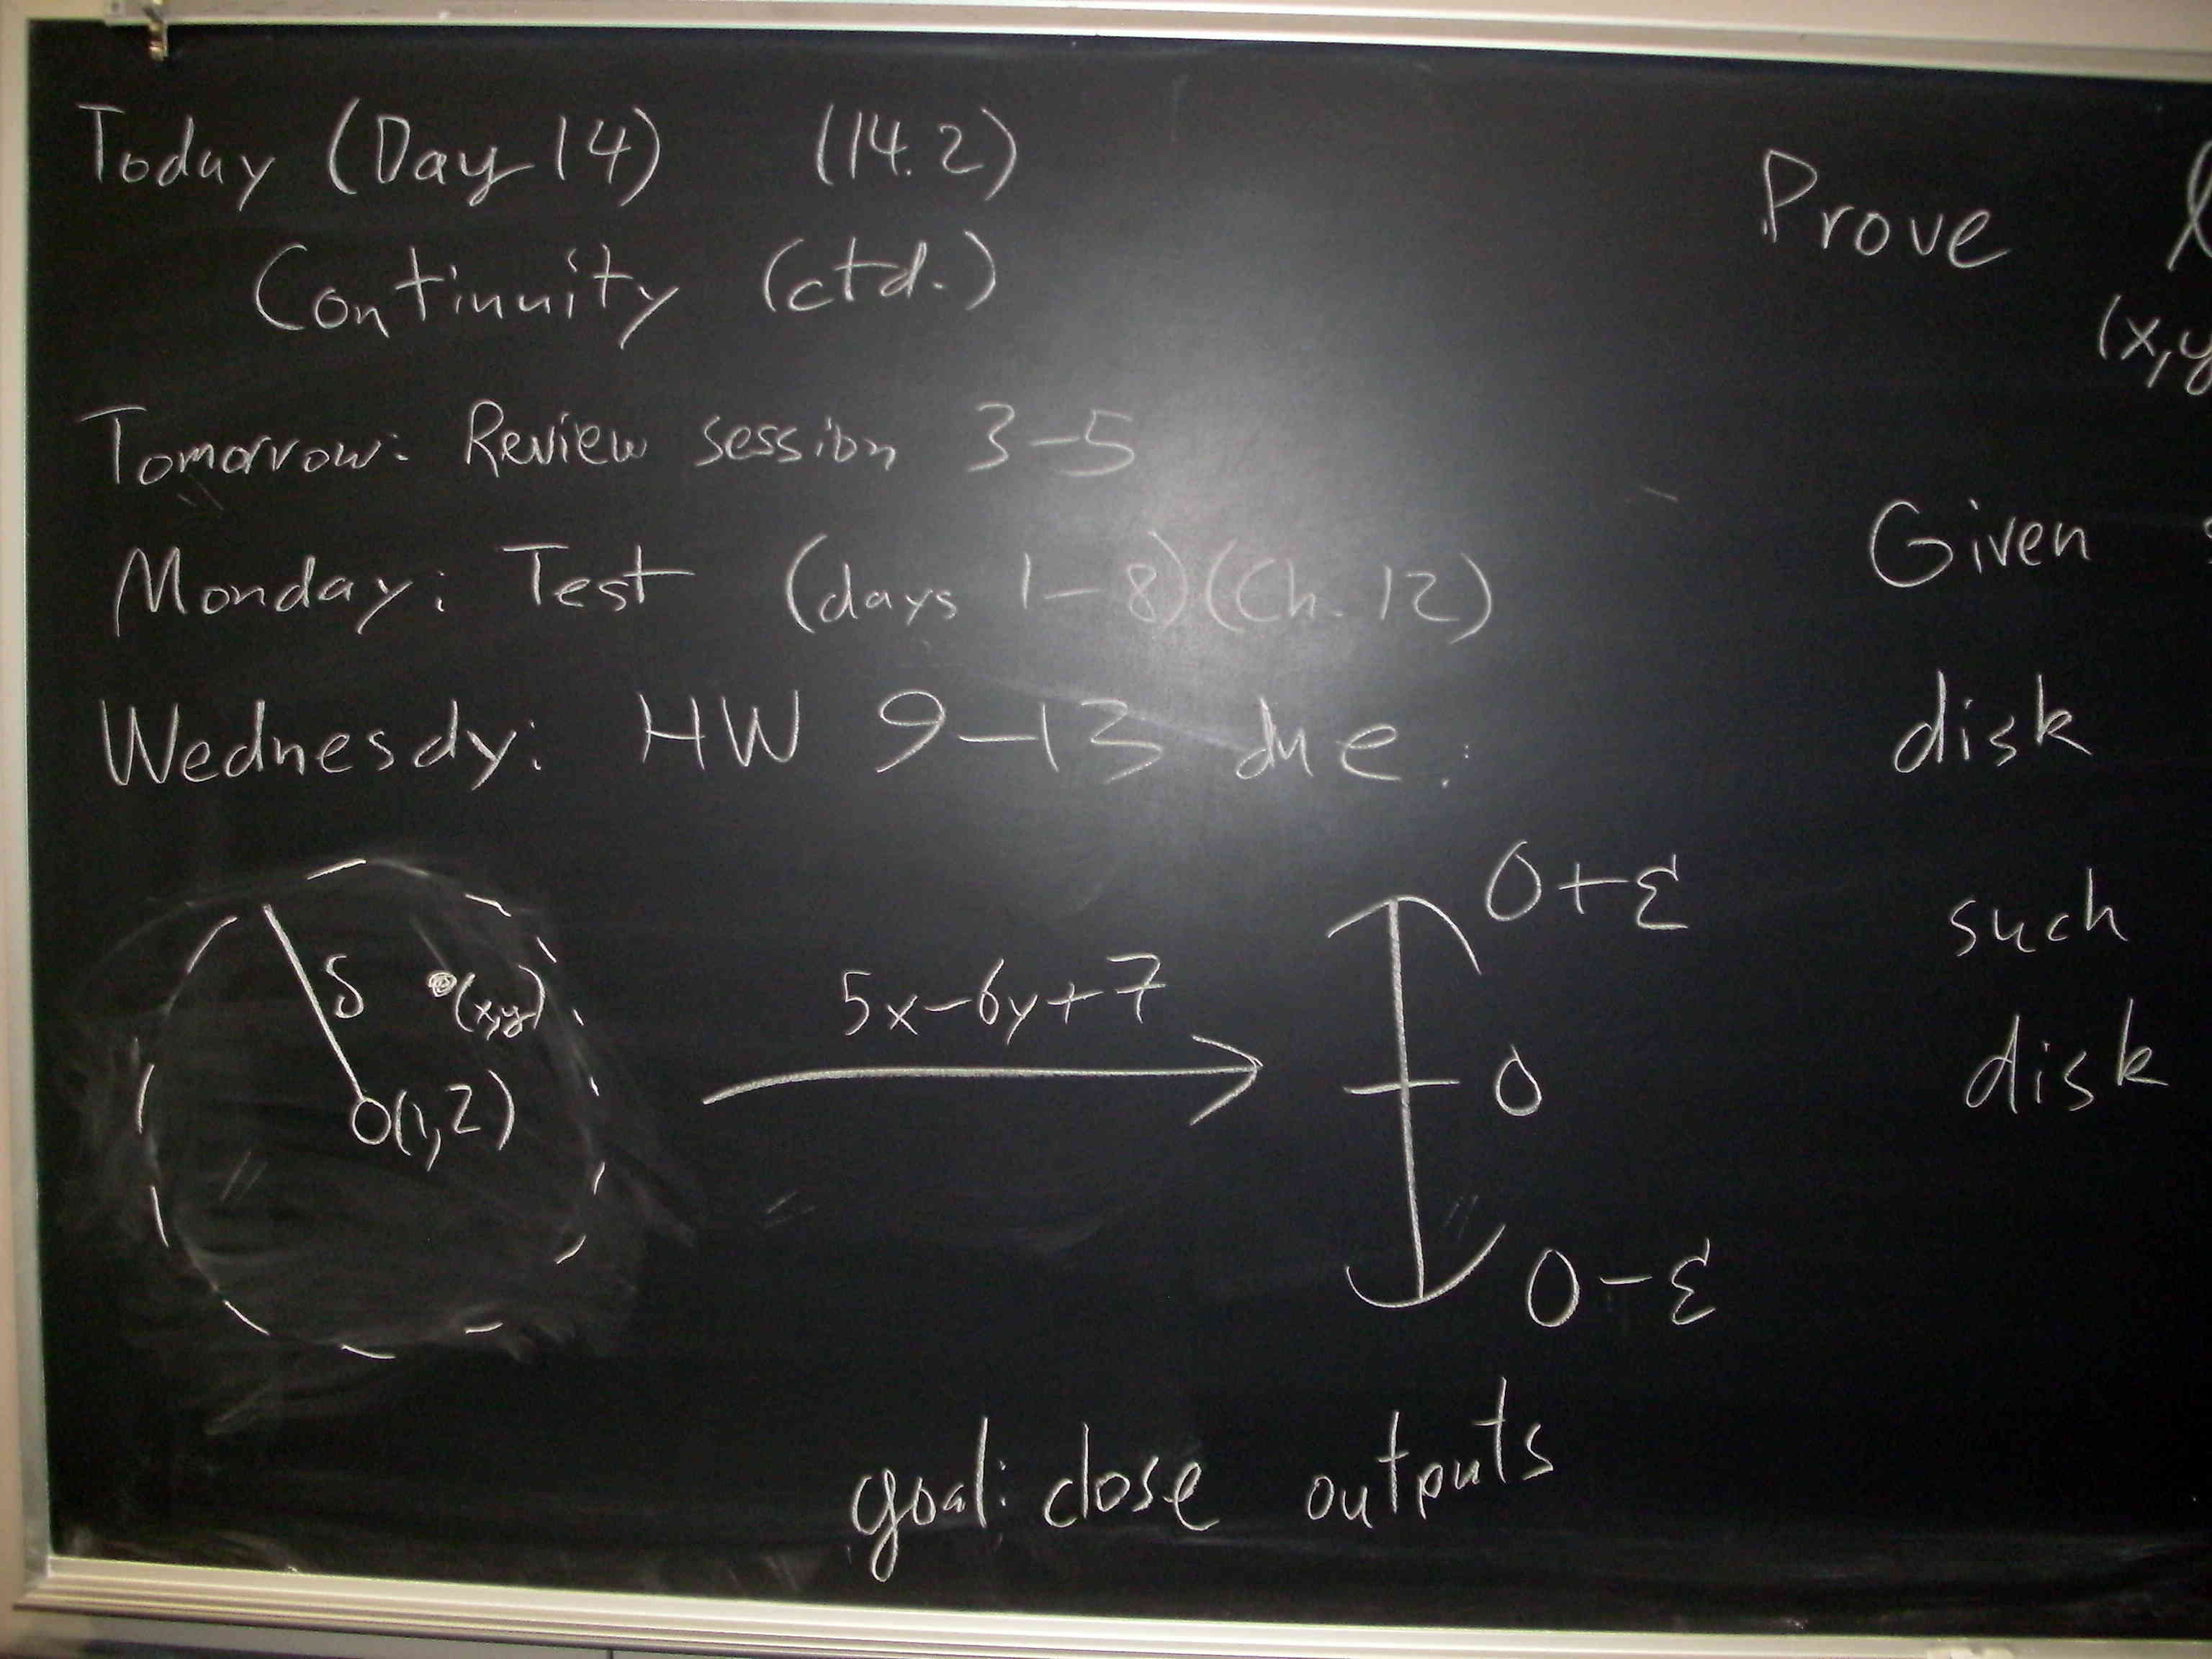 Today (Day 14) (14.2)
Continuity (ctd.)
Tomorrow: Review session 3-5
Monday: Test (days 1-8)(Ch. 12)
Wednesdy: HW 9-13 due.
δ (x,y)
(1,2)
5x-6y+7
0+ε
0
0-ε
goal: close outputs
Prove
(x,y
Given
disk
such
disk